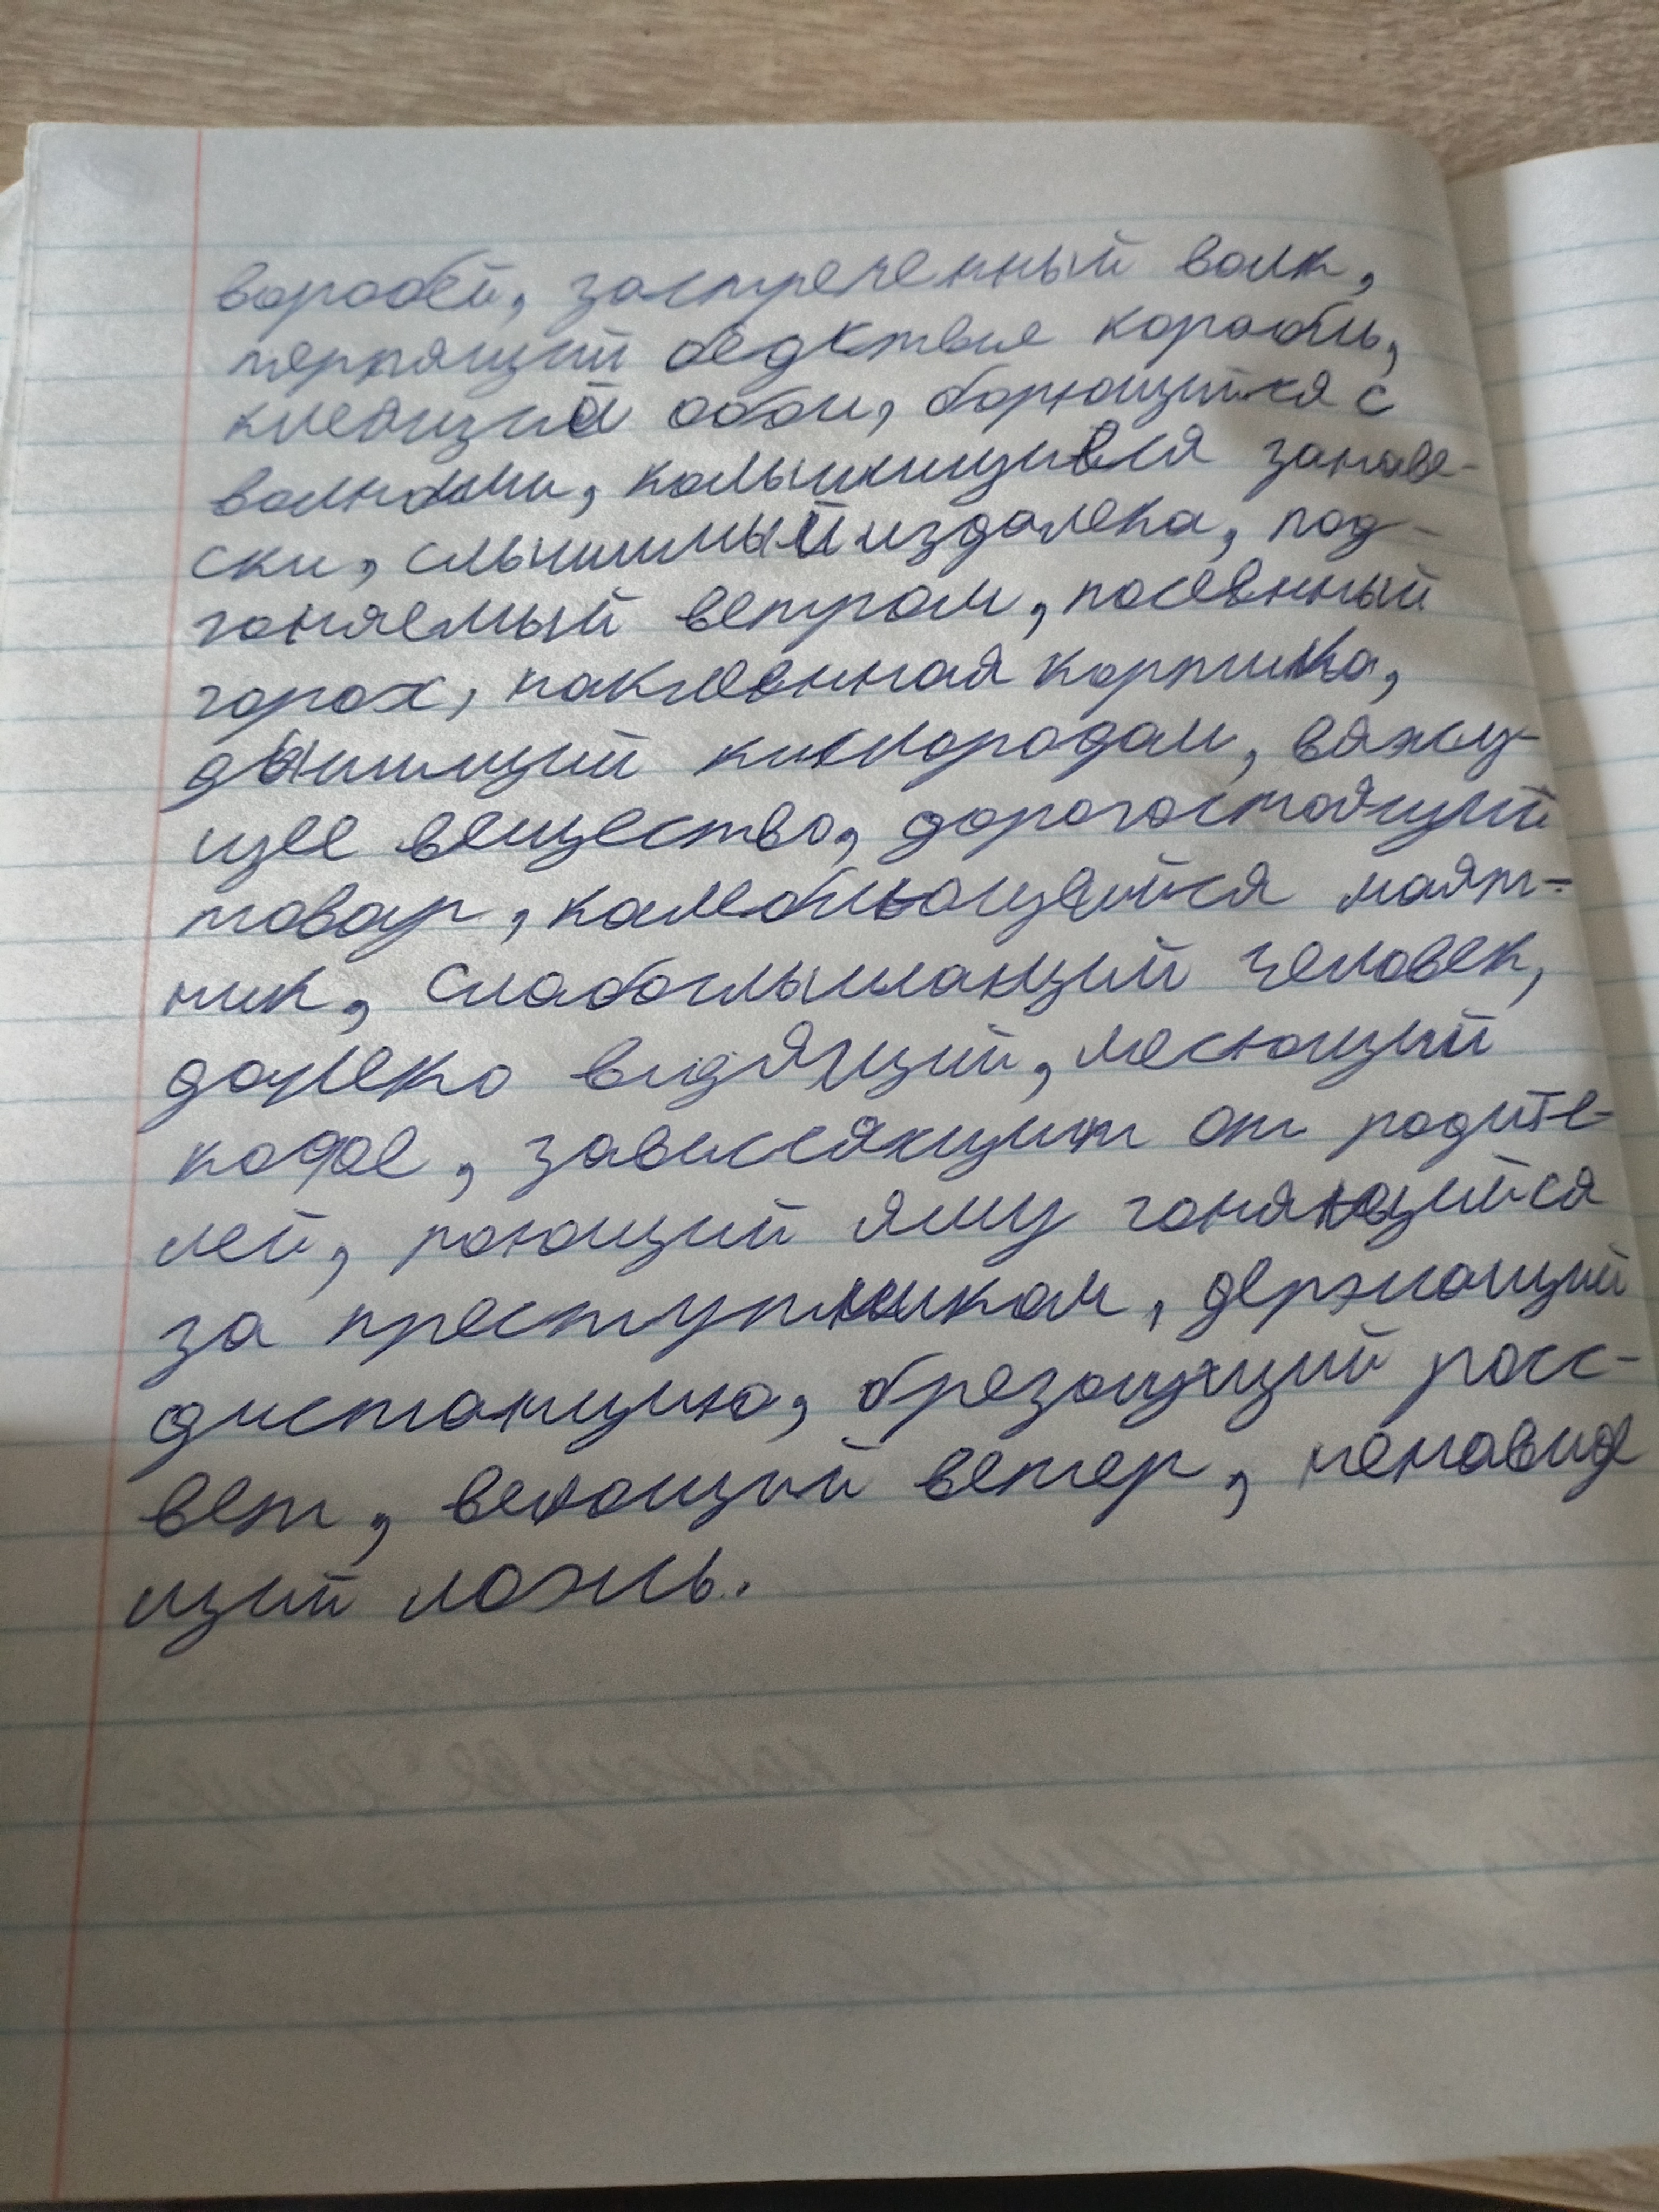 воробей, застреченный волк,
терпящий бедствие корабль,
клеящий обои, борющийся с
волнами, колышищиеся занаве-
ски, слышимый издалека, под-
гоняемый ветром, посеянный
горох, наклеенная картинка,
дышищий кислородом, вяжу-
щее вещество, дорогостоящий
товар, колеблющийся маят-
ник, слабослышащий человек,
далеко видящий, мелющий
кофе, зависящий от родите-
лей, роющий яму гоняющийся
за преступником, держащий
дистанцию, брезжущий расс-
вет, веющий ветер, ненавидя
щий ложь.